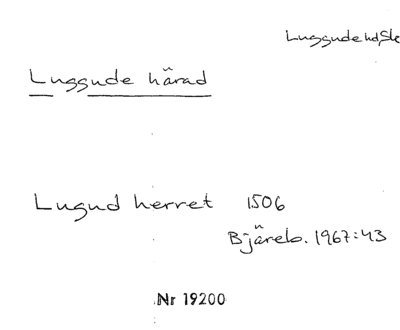 Luggude hd, Sk
Luggude härad
Lugud herret 1506
Bjäreb. 1967:43
Nr 19200